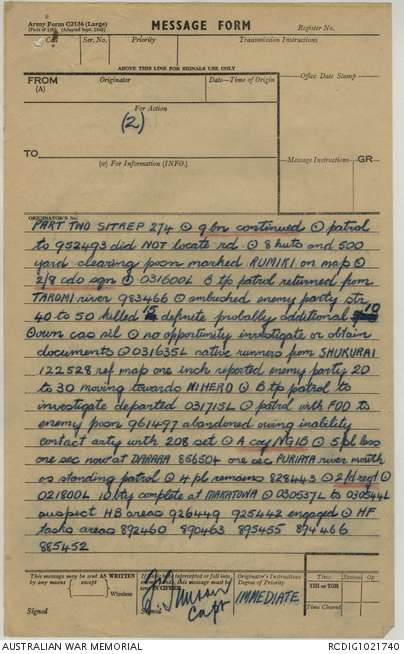 Army Form C2136 (Large)
MESSAGE FORM
Register No.
Call
Ser. No.
Priority
Transmission Instructions
ABOVE THIS LINE FOR SIGNALS USE ONLY
FROM
(A)
Originator
Date-Time of Origin
Office Date Stamp
For Action
(2)
TO
(w) For Information (INFO.)
Message Instructions
GR
ORIGINATOR'S No.
PART TWO SITREP 274 ⊙ 9 bn continued ⊙ patrol
to 952493 did NOT locate rd ⊙ 8 huts and 500
yard clearing posn marked RUMIKI on map ⊙
2/8 cdo sqn ⊙ 031600L B tp patrol returned from
TAROMI river 983466 ⊙ ambushed enemy party str
40 to 50 killed definite probably additional 10
⊙ own cas nil ⊙ no opportunity investigate or obtain
documents ⊙ 031635L native runners from SHUKURAI
122528 ref map one inch reported enemy party 20
to 30 moving towards NIHERO ⊙ B tp patrol to
investigate departed 031715L ⊙ patrol with FOO to
enemy posn 961497 abandoned owing inability
contact arty with 208 set ⊙ A coy NGIB ⊙ 5 pl less
one sec now at DARARA 856504 one sec PURIATA river mouth
as standing patrol ⊙ 4 pl remains 828443 ⊙ 2 fd regt ⊙
021800L 10 bty complete at MAKATOWA ⊙ 030537L to 030544L
suspect HB areas 926449 925442 engaged ⊙ HF
tasks areas 892460 890463 895455 894466
885452
This message may be sent AS WRITTEN
by any means
(except)
Wireless
Signed
If liable to be intercepted or fall into
enemy hands, this message must be
sent IN CIPHER
Signed
Capt
Originator's Instructions
Degree of Priority
IMMEDIATE
Time
System
Op
THI or TOR
Time Cleared
AUSTRALIAN WAR MEMORIAL
RCDIG1021740